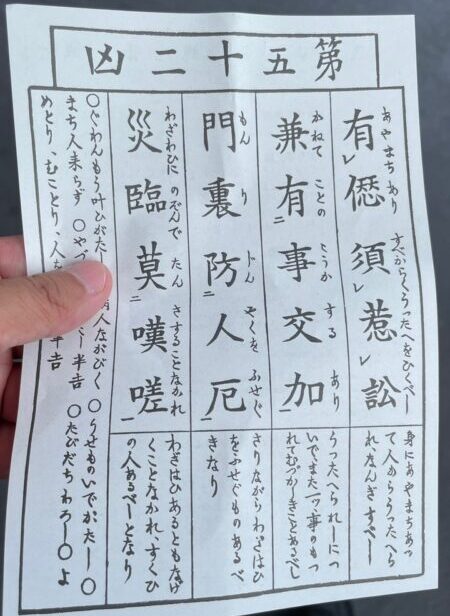 第五十二凶
あやまちあり すべからくうつたへをひくべし
有レ愆須レ惹レ訟
身にあやまちあつ
て人からうつたへら
れなんぎすべし
かねて ことの こうか する あり
兼有二事交加一
うつたへられしにつ
いでまた一ツ事のもつ
れてむづかしきことあるべし
もん り じん やくを ふせぐ
門裏防二人厄一
さりながらわざはひ
をふせぐものあるべ
きなり
わざわひに のぞんで たん さすることなかれ
災臨莫二嘆嗟一
わざはひあるともなげ
くことなかれ、すくひ
の人あるべしとなり
〇ぐわんもう叶ひがたし 病人ながびく 〇うせものいでがたし〇
まち人来らず 〇やづ し半吉 〇たびだちわろし〇よ
めとり、むことり、人を 半吉